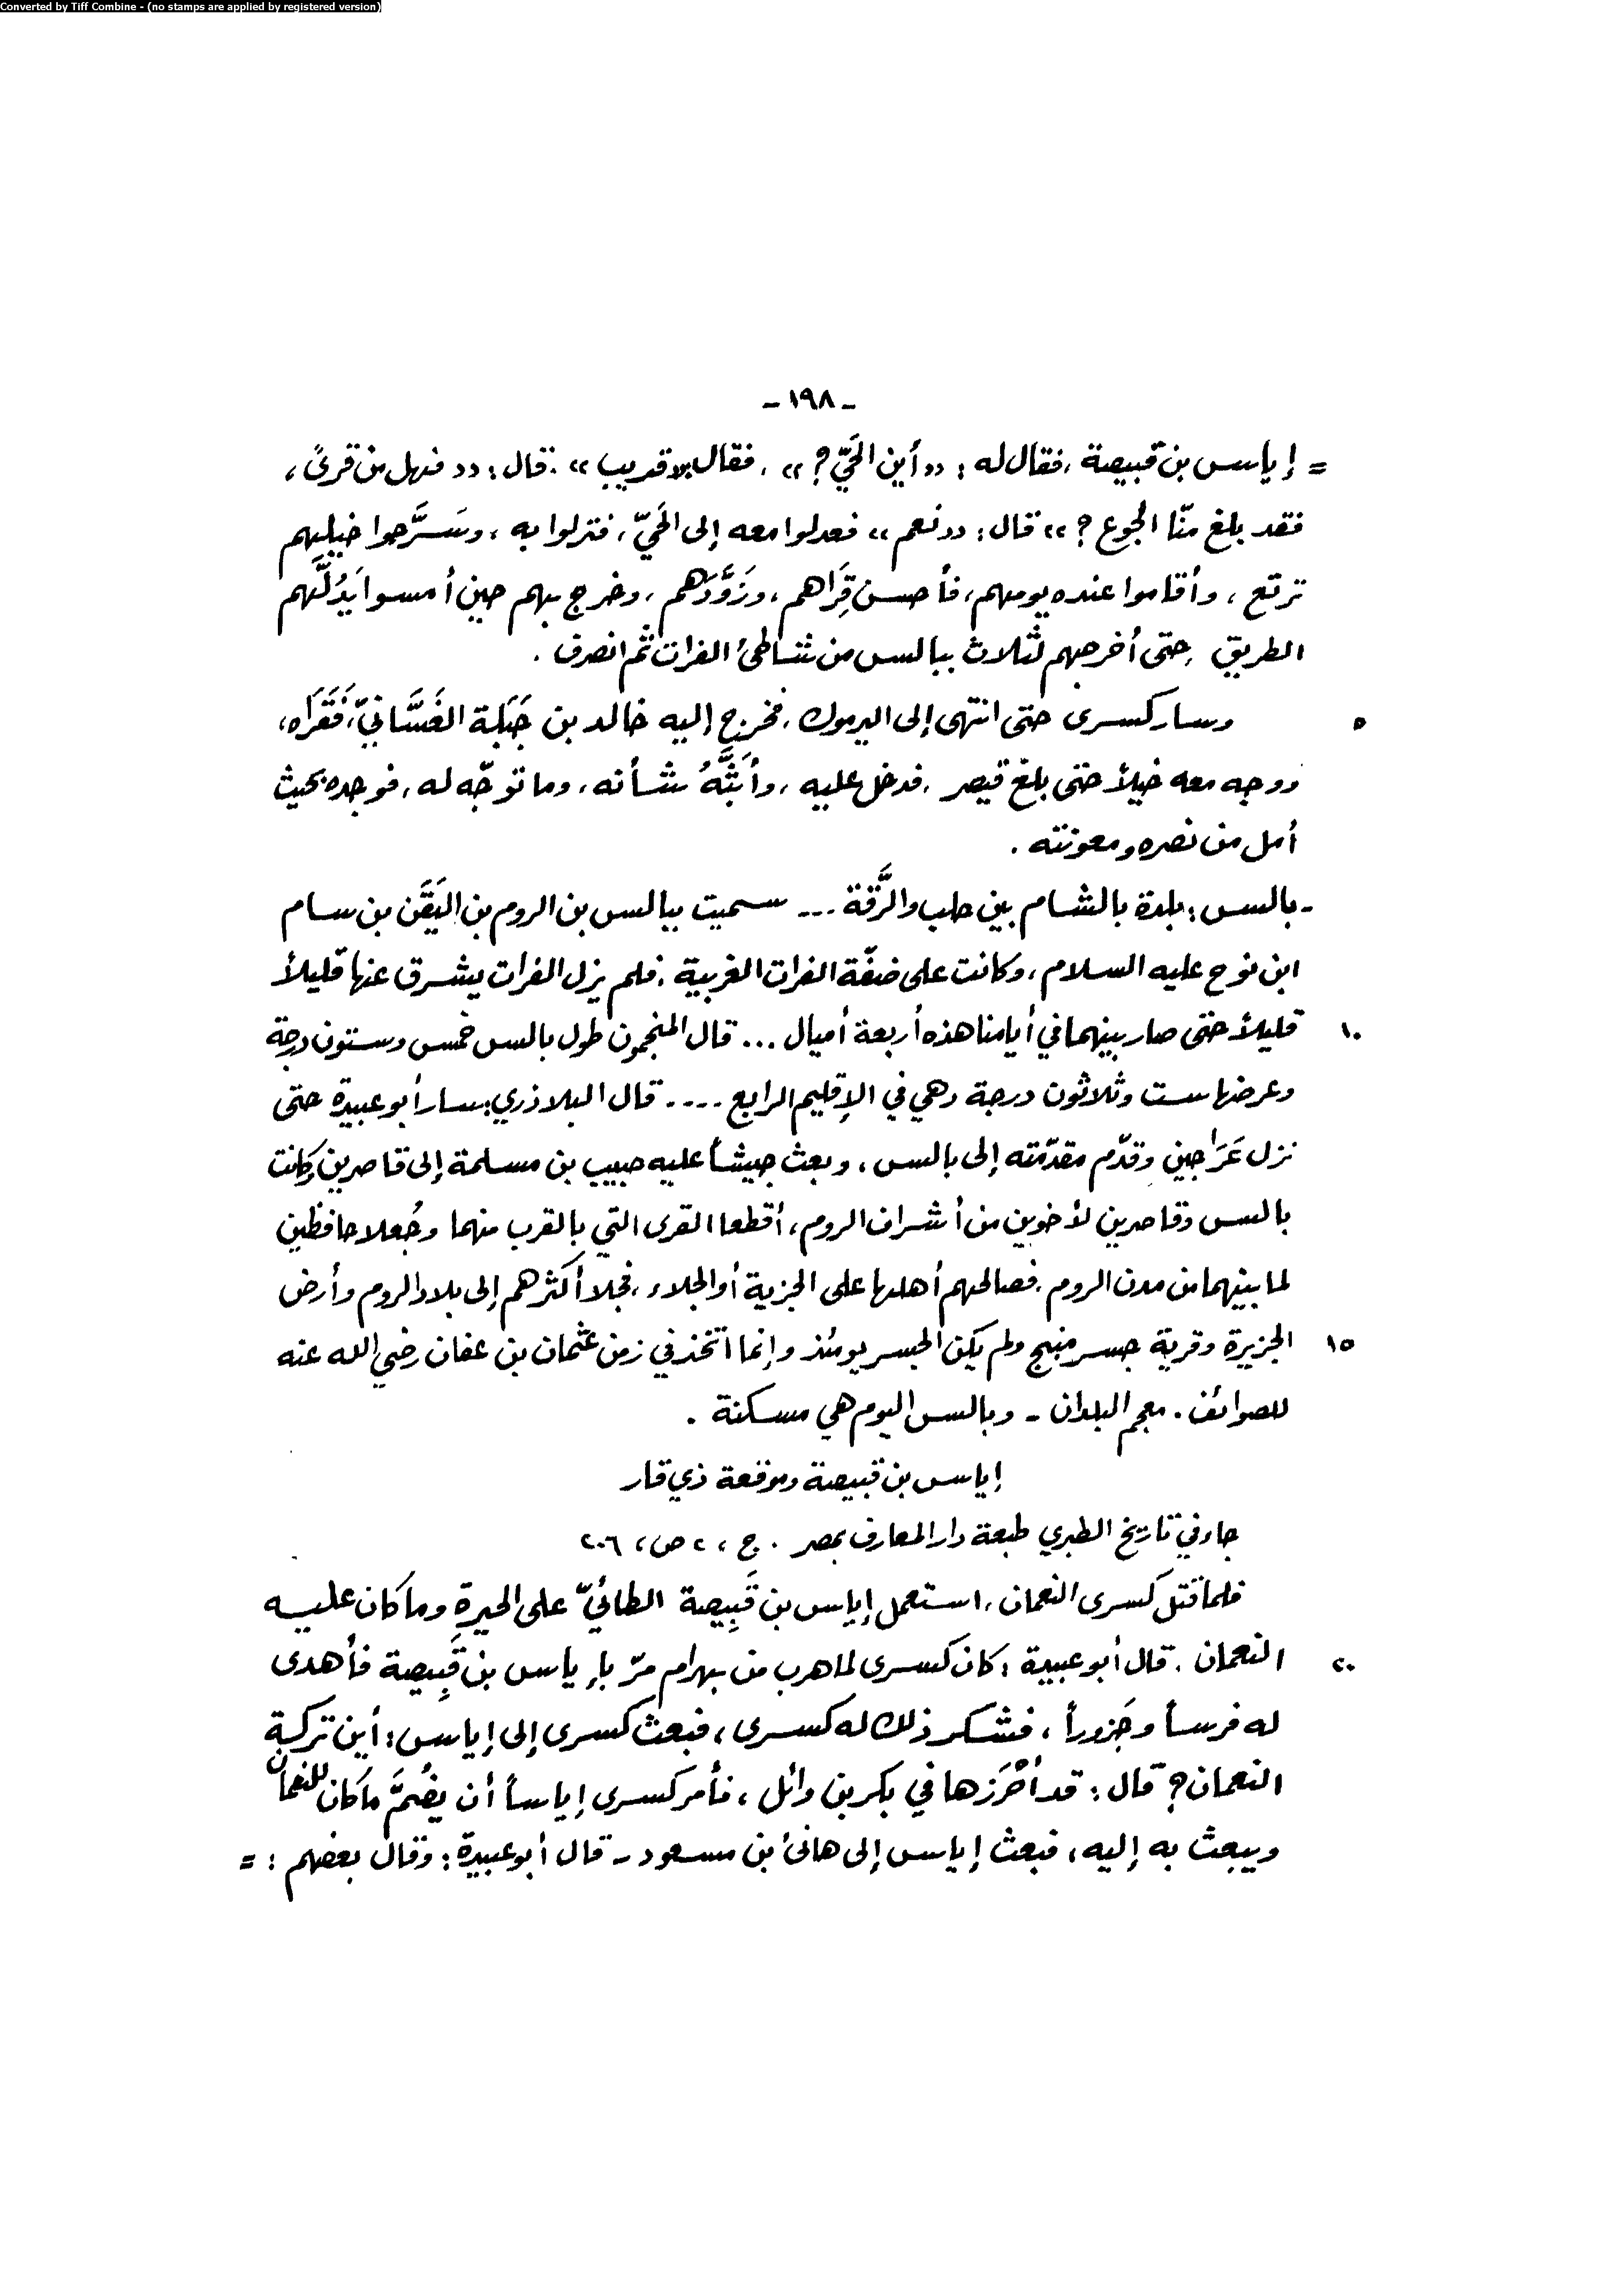 Converted by Tiff Combine - (no stamps are applied by registered version)
- ١٩٨ -
= إياس بن قبيصة، فقال له: «أين الحَيّ؟»، فقال «قريب». قال: «فهل من قرىً،
فقد بلغ منّا الجوع؟» قال: «نعم» فعدلوا معه إلى الحَيّ، فنزلوا به، وسَرَّحوا خيلهم
ترتع، وأقاموا عنده يومهم، فأحسن قِرَاهم، وزَوَّدَهم، وخرج بهم حين أمسوا يَدُلَّهم
الطريق، حتى أخرجهم لثلاث ببالس من شاطئ الفرات ثم انصرف.
٥ وسار كسرى حتى انتهى إلى اليرموك، فخرج إليه خالد بن جَبَلة الغَسَّانيّ، فَقَرَاه،
ووجه معه خيلاً حتى بلغ قيصر، فدخل عليه، وأَبَثَّهُ شأنه، وما توجّه له، فوجده بحيث
أمل من نصره ومعونته.
- بالس: بلدة بالشام بين حلب والرَّقة ... سميت ببالس بن الروم بن اليَقَن بن سام
ابن نوح عليه السلام، وكانت على ضفّة الفرات الغربية، فلم يزل الفرات يشرق عنها قليلاً
١٠ قليلاً حتى صار بينهما في أيامنا هذه أربعة أميال ... قال المنجمون طول بالس خمس وستون درجة
وعرضها ست وثلاثون درجة وهي في الإقليم الرابع .... قال البلاذري: سار أبو عبيدة حتى
نزل عَرَاجين وقدّم مقدّمته إلى بالس، وبعث جيشاً عليه حبيب بن مسلمة إلى قاصرين وكانت
بالس وقاصرين لأخوين من أشراف الروم، أقطعا القرى التي بالقرب منهما وجُعلا حافظين
لما بينهما من مدن الروم، فصالحهم أهلها على الجزية أو الجلاء، فجلا أكثرهم إلى بلاد الروم وأرض
١٥ الجزيرة وقرية جسر منبج ولم يكن الجسر يومئذ وإنما اتخذ في زمن عثمان بن عفان رضي الله عنه
للصوائف. معجم البلدان - وبالس اليوم هي مسكنة.
إياس بن قبيصة وموقعة ذي قار
جاء في تاريخ الطبري طبعة دار المعارف بمصر. ج، ٢ ص، ٢٠٦
فلما قتل كسرى النعمان، استعمل إياس بن قَبِيصة الطائيّ على الحيرة وما كان عليه
٢٠ النعمان. قال أبو عبيدة: كان كسرى لما هرب من بهرام مرّ بإياس بن قَبِيصة فأهدى
له فرساً وجَزوراً، فشكر ذلك له كسرى، فبعث كسرى إلى إياس: أين تركة
النعمان؟ قال: قد أَحْرَزها في بكر بن وائل، فأمر كسرى إياساً أن يضُمَّ ما كان للنعمان
ويبعث به إليه، فبعث إياس إلى هانئ بن مسعود - قال أبو عبيدة: وقال بعضهم: =